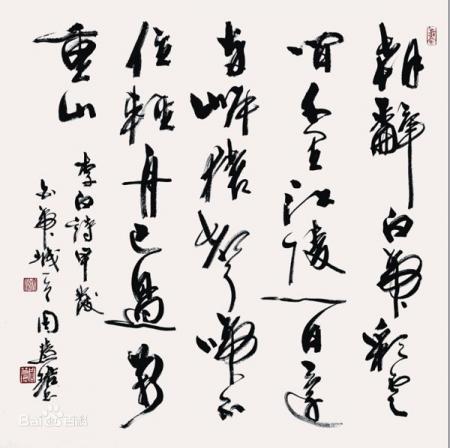 朝辭白帝彩雲
間千里江陵一日還
兩岸猿聲啼不
住輕舟已過萬
重山
李白詩早發
白帝城一首 周
Bai百科